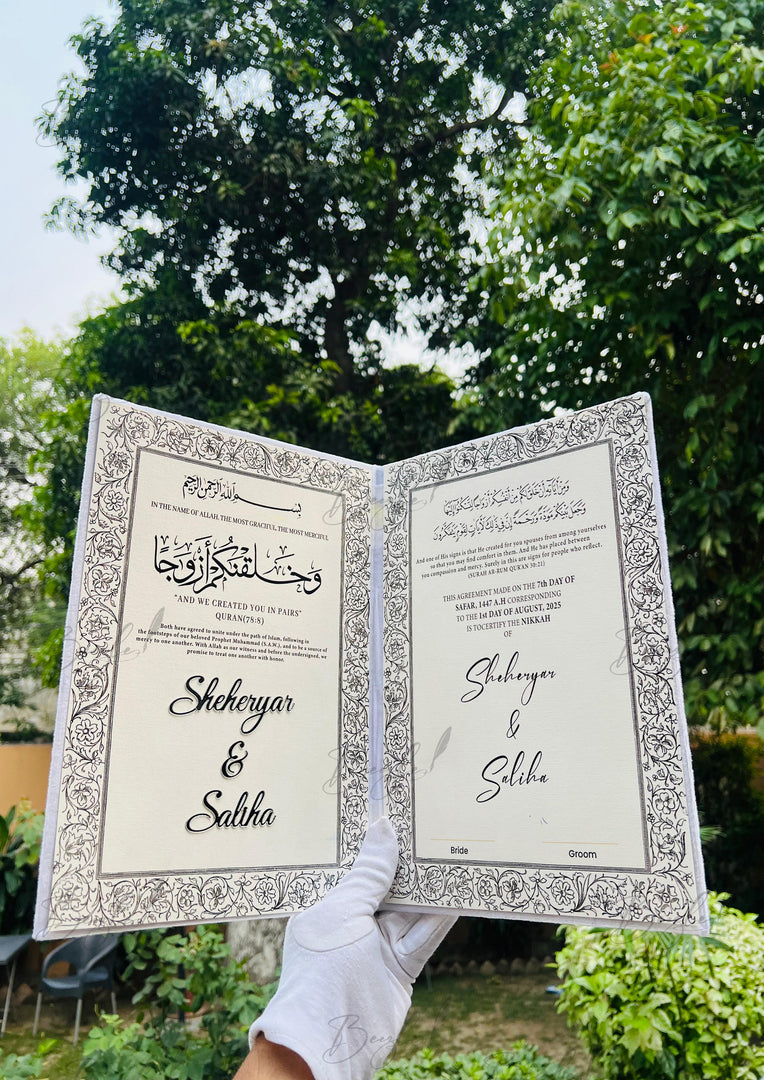 بسم الله الرحمن الرحيم
IN THE NAME OF ALLAH, THE MOST GRACIOUS, THE MOST MERCIFUL
وخلقنكم أزوجا
"AND WE CREATED YOU IN PAIRS"
QURAN(78:8)
Both have agreed to unite under the path of Islam, following in
the footsteps of our beloved Prophet Muhammad (S.A.W.), and to be a source of
mercy to one another. With Allah as our witness and before the undersigned, we
promise to treat one another with honor.
Sheheryar
&
Saliha
ومن آياته أن خلق لكم من أنفسكم أزواجا لتسكنوا إليها
وجعل بينكم مودة ورحمة إن في ذلك لآيات لقوم يتفكرون
And one of His signs is that He created for you spouses from among yourselves
so that you may find comfort in them. And He has placed between
you compassion and mercy. Surely in this are signs for people who reflect.
(SURAH AR-RUM QURAN 30:21)
THIS AGREEMENT MADE ON THE 7th DAY OF
SAFAR, 1447 A.H CORRESPONDING
TO THE 1st DAY OF AUGUST, 2025
IS TOCERTIFY THE NIKKAH
OF
Sheheryar
&
Saliha
Bride
Groom